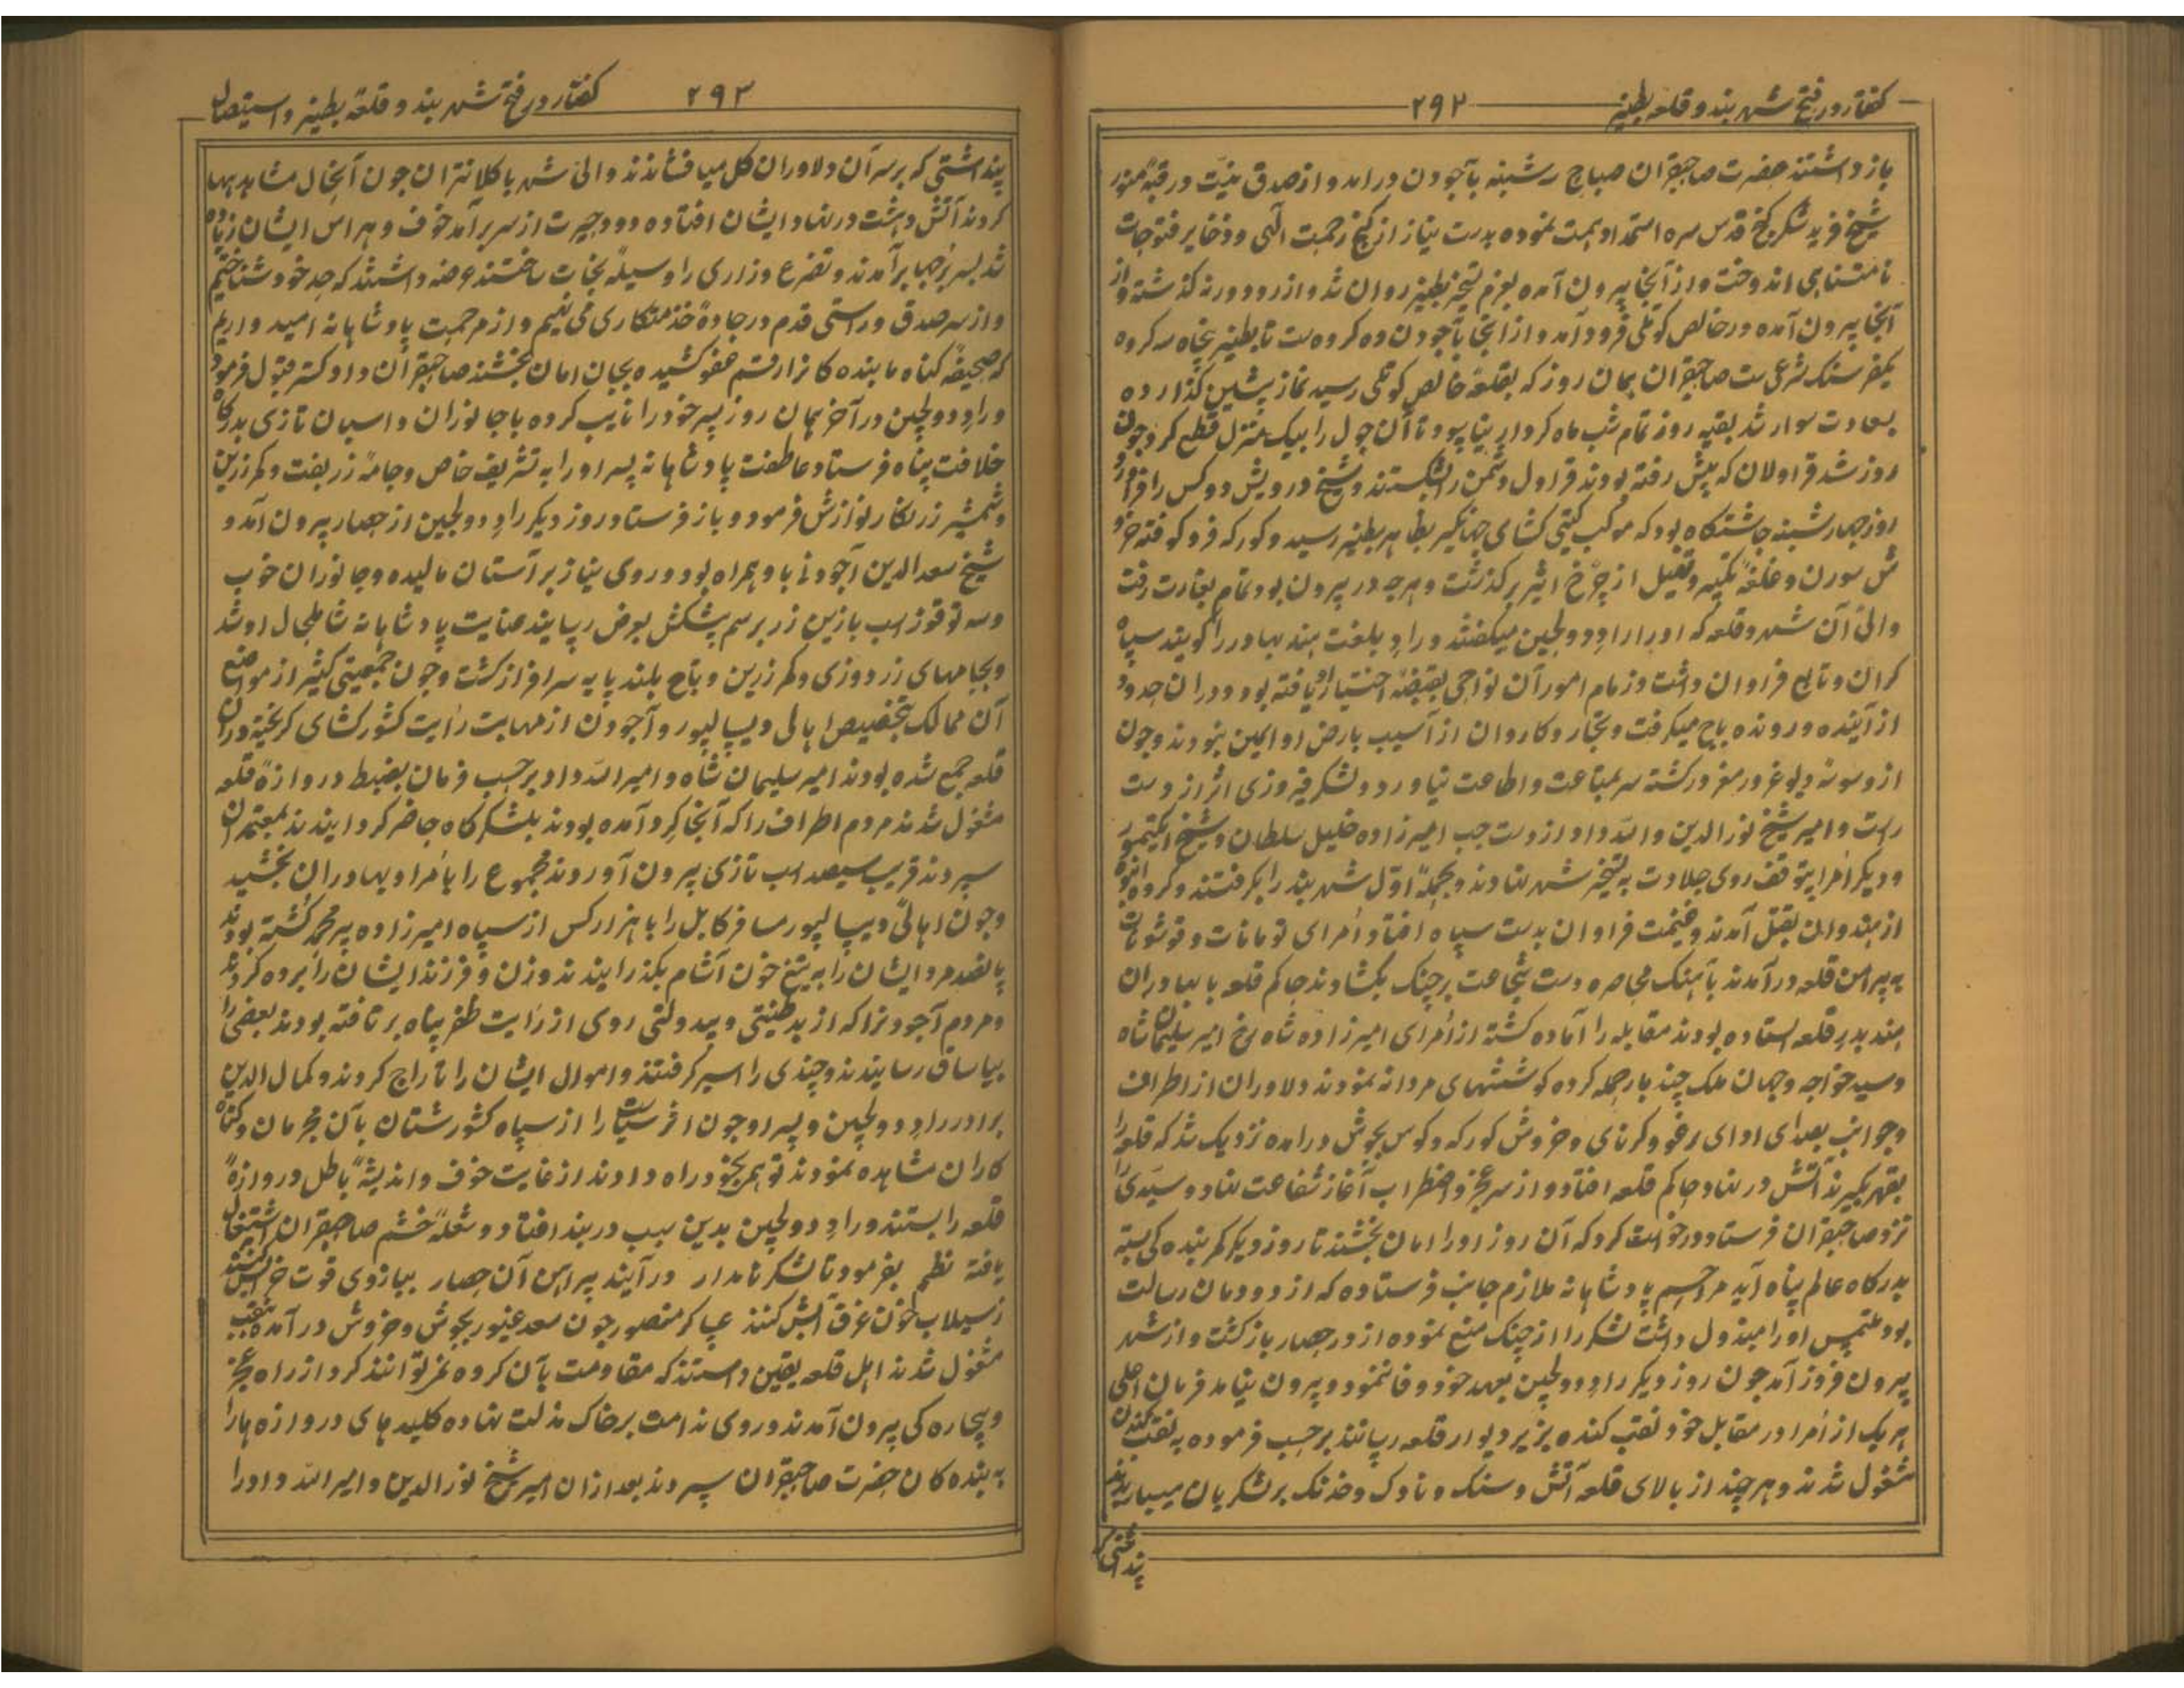 کفتار در فتح شهر بند و قلعه بطنیر
۲۹۲
باز داشتند حضرت صاحبقران صباح رشنبه بآجودن درامد و از صدق نیّت در قبهٔ منور
شیخ فرید شکر کنج قدس سره استمداد همت نموده بدست نیاز از کنج رحمت الٓهی و ذخایر فتوحات
نامتناهی اندوخت و از آنجا بیرون آمده بعزم تسخیر بطنیر روان شد و از رود ورنه کذشته و از
آنجا بیرون آمده در خالص کوتلی فرود آمد و از انجا بآجودن ده کروه ست تا بطنیر پنجاه سه کروه
یکفرسنک شرعی ست صاحبقران بهمان روز که بقلعهٔ خالص کوتلی رسید نماز پشین کذارده
بسعادت سوار شد بقیه روز تمام شب ماه کردار بنیاپیود تا آن چول را بیک منزل قطع کرد چون
روز شد قراولان که پیش رفته بودند قراول دشمن را شکستند و شیخ درویش دو کس را
روز چهار شنبه چاشتکاه بود که موکب کیتی کشای جهانکیر بظاهر بطنیر رسید و کورکه فرو کوفته
سورن و غلغهٔ تکبیر و تهلیل از چرخ اثیر برکذشت و هرچه در بیرون بود تمام بغارت رفت
والی آن شهر و قلعه که اورا راو دولچین میکفتند و راو بلغت هند بهادر را کویند سپاه
کران و تابع فراوان داشت و زمام امور آن نواحی بقبضهٔ اختیار او یافته بود و دران حدود
از آینده و رونده باج میکرفت و تجار و کاروان از آسیب بارض او ایمن نبودند و چون
از وسوسهٔ دیو غرور مغرور کشته سر بمتابعت و اطاعت نیاورد و لشکر فیروزی اثر از دست
راست و امیر شیخ نورالدین و الله داد از دست چپ امیرزاده خلیل سلطان و شیخ
و دیکر امرا بتوقف روی جلادت به تسخیر شهر نهادند و بحملهٔ اوّل شهر بند را بکرفتند و کروه انبوه
از هندوان بقتل آمدند و غنیمت فراوان بدست سپاه افتاد و اُمرای تومانات و قوشونات
به پیرامن قلعه درآمدند باهنک محاصره دست شجاعت برجنک بکشادند حاکم قلعه با بهادران
هند بدر قلعه استاده بودند مقابله را آماده کشته از اُمرای امیرزاده شاه رخ امیر سلیمان شاه
و سید خواجه و جهان ملک چند بار حمله کرده کوششهای مردانه نمودند دلاوران از اطراف
و جوانب بصدای ادای برغو و کرنای و خروش کورکه و کوس بجوش درامده نزدیک شد که قلعه را
بقهر بکیرند آتش در نهاد حاکم قلعه افتاد و از سر عجز و اضطراب آغاز شفاعت نهاد و سیّدی را
نزد صاحبقران فرستاد و درخواست کرد که آن روز اورا امان بخشند تا روز دیکر کمر بنده کی بسته
بدرکاه عالم پناه آید مراحم پادشاهانه ملازم جانب فرستاده که از دودمان رسالت
بود ملتمس اورا مبذول داشت لشکر را از جنک منع نموده از در حصار بازکشت و از شهر
بیرون فرود آمد چون روز دیکر راو دولچین بعهد خود وفا ننمود و بیرون نیامد فرمان اعلی
هر یک از اُمرا در مقابل خود نقب کنده بزیر دیوار قلعه رسانند برحسب فرموده به نقب کندن
مشغول شدند و هر چند از بالای قلعه آتش و سنک و ناوک و خدنک بر لشکریان میباریدند
پنداشتی
کفتار در فتح شهر بند و قلعهٔ بطنیر و استیصال
۲۹۳
پنداشتی که برسر آن دلاوران کل میافشاندند والی شهر با کلانتران چون آنحال مشاهد
کردند آتش دهشت در نهاد ایشان افتاده دود حیرت از سر برآمد خوف و هراس ایشان زیاده
شد بسر برجها برآمدند و تضرع و زاری را وسیلهٔ نجات ساختند عرضه داشتند که حد خود شناختیم
و از سر صدق و راستی قدم در جادهٔ خدمتکاری می نهیم و از مرحمت پادشاهانه امید داریم
که صحیفهٔ کناه ما بنده کانرا رقم عفو کشیده بجان امان بخشند صاحبقران داد کستر قبول فرمود
و راو دولچین در آخر همان روز پسر خودرا نایب کرده با جانوران و اسبان تازی بدرکاه
خلافت پناه فرستاد عاطفت پادشاهانه پسر اورا به تشریف خاص و جامهٔ زربفت و کمر زرین
و شمشیر زرنکار نوازش فرمود و باز فرستاد و روز دیکر راو دولچین از حصار بیرون آمد و
شیخ سعدالدین آجودنی با و همراه بود و روی نیاز بر آستان مالیده و جانوران خوب
و سه توقوز اسب با زین زر برسم پشکش بعرض رسانید عنایت پادشاهانه شاملحال او شد
و بجامهای زردوزی و کمر زرین و تاج بلند پایه سرافراز کشت و چون جمعیتی کثیر از مواضع
آن ممالک بتخصیص اهالی دیپالپور و آجودن از مهابت رایت کشورکشای کریخته دران
قلعه جمع شده بودند امیر سلیمان شاه و امیر الله داد برحسب فرمان بضبط دروازهٔ قلعه
مشغول شدند مردم اطراف را که آنجا کرد آمده بودند بلشکرکاه حاضر کردانیدند بمعتمدان
سپردند قریب سیصد اسب تازی بیرون آوردند مجموع را بامرا و بهادران بخشید
و چون اهالئ دیپالپور مسافر کابل را با هزار کس از سپاه امیرزاده پیر محمد کشته بودند
پانصد مرد ایشان را به تیغ خون آشام بکذرانیدند و زن و فرزند ایشان را برده کردند
و مردم آجودن را که از بد طینتی و بیدولتی روی از رایت ظفر پناه بر تافته بودند بعضی را
بیاساق رسانیدند و چندی را اسیر کرفتند و اموال ایشان را تاراج کردند و کمال الدین
برادر راو دولچین و پسر او چون اثر سیاست را از سپاه کشورستان بآن مجرمان و کناه
کاران مشاهده نمودند توهم بخود راه دادند از غایت خوف و اندیشهٔ باطل دروازهٔ
قلعه را بستند و راو دولچین بدین سبب در بند افتاد و شعلهٔ خشم صاحبقران اشتعال
یافته نظم بفرمود تا لشکر نامدار درآیند پیرامن آن حصار ببازوی قوت
ز سیلاب خون غرق آبش کنند عساکر منصور چون سعد غیور بجوش و خروش درآمده بنقب
مشغول شدند اهل قلعه یقین دانستند که مقاومت بآن کروه نتوانند کرد از راه عجز
و بیچاره کی بیرون آمدند و روی ندامت برخاک مذلت نهاده کلید های دروازه هارا
به بنده کان حضرت صاحبقران سپردند بعد ازان امیر شیخ نورالدین و امیر الله داد را